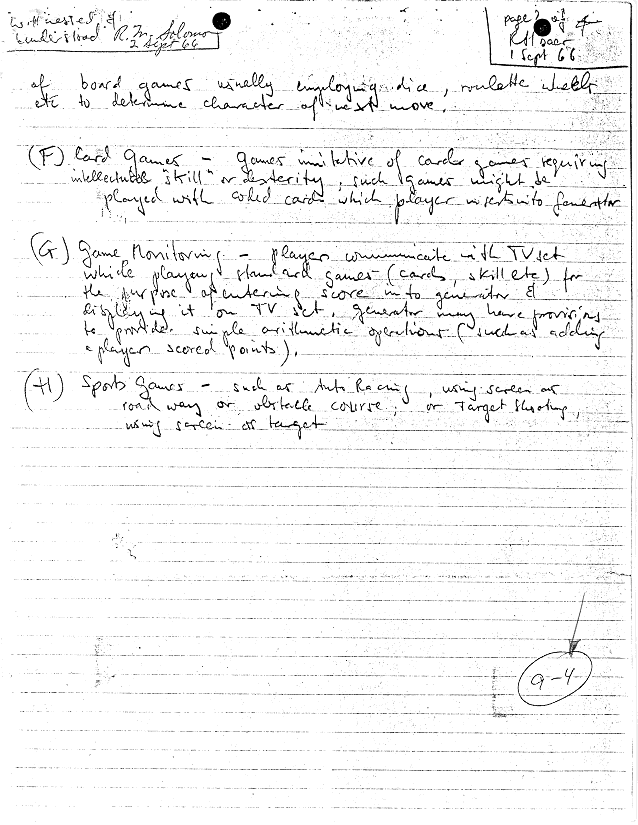 Witnessed &
understood R.M. Solomon
2 Sept 66
page 2 of 4
RH Baer
1 Sept 66
of board games usually employing dice, roulette wheels
etc to determine character of next move.
(F) Card Games - games imitative of card games requiring
intellectual "skill" or dexterity, such games might be
played with coded cards which player inserts into generator
(G) Game Monitoring - players communicate with TV set
while playing standard games (cards, skill etc) for
the purpose of entering score into generator &
displaying it on TV set. Generator may have provisions
to provide simple arithmetic operations (such as adding
a player scored points).
(H) Sports Games - such as Auto Racing, using screen as
road way or obstacle course, or Target Shooting,
using screen as target
a-4